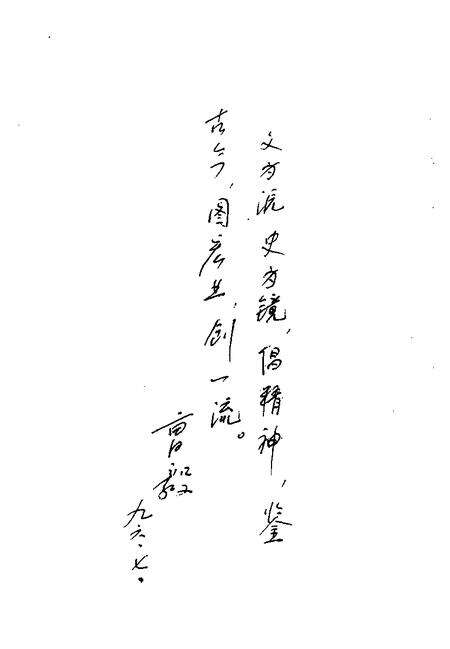 文为流史为镜，倡精神，鉴
古今，图宏业，创一流。
曹毅
九六.七.